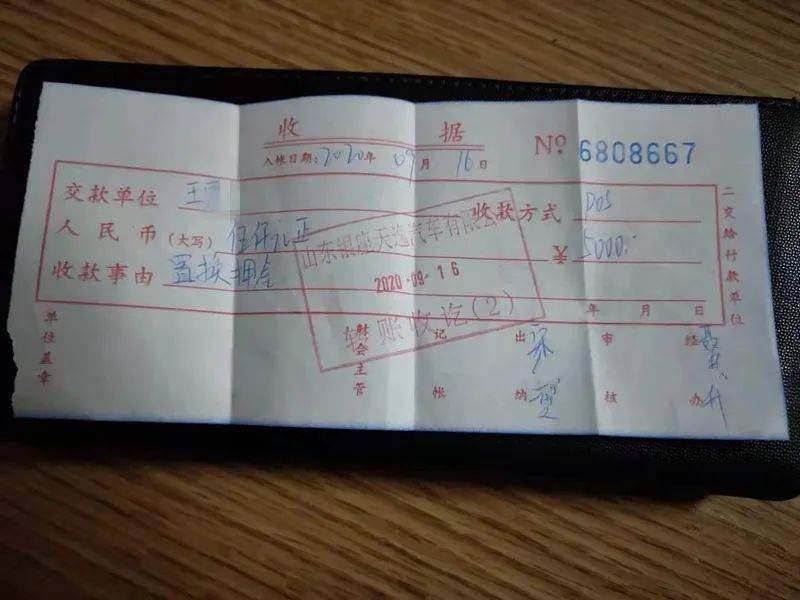 收 据
No 6808667
入帐日期：2020年 09月 16日
交款单位 王 收款方式 POS
人民币（大写） 伍仟元正 ¥ 5000.-
收款事由 置换押金
山东银座天逸汽车有限公
2020-09-16
转账收讫(2)
年 月 日
二交给付款单位
单位盖章
财会主管
记帐
出纳
审核
经办